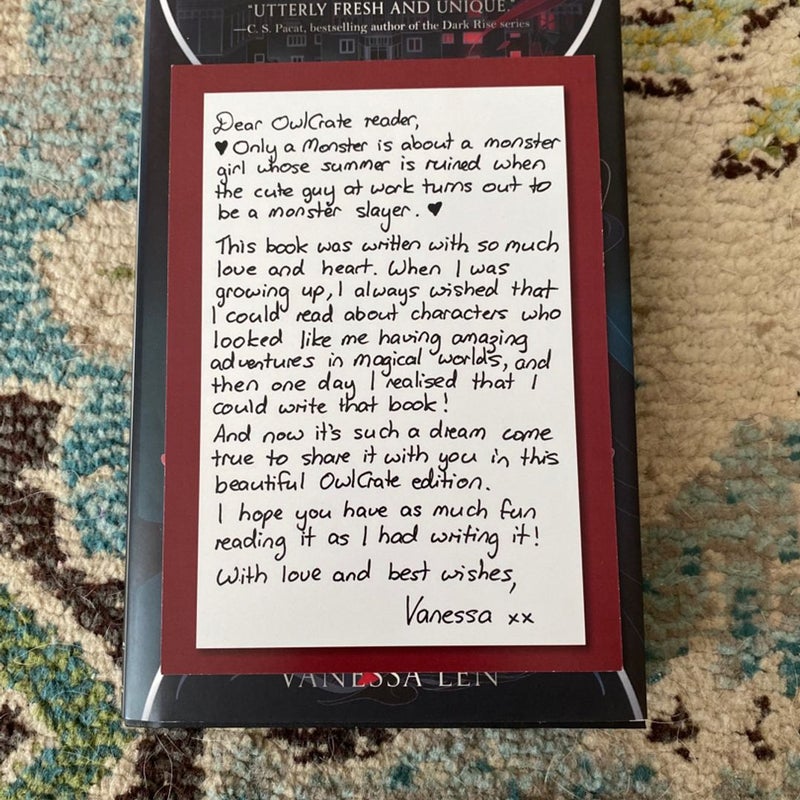 "UTTERLY FRESH AND UNIQUE."
—C. S. Pacat, bestselling author of the Dark Rise series
Dear OwlCrate reader,
♥ Only a Monster is about a monster
girl whose summer is ruined when
the cute guy at work turns out to
be a monster slayer. ♥
This book was written with so much
love and heart. When I was
growing up, I always wished that
I could read about characters who
looked like me having amazing
adventures in magical worlds, and
then one day I realised that I
could write that book!
And now it's such a dream come
true to share it with you in this
beautiful OwlCrate edition.
I hope you have as much fun
reading it as I had writing it!
With love and best wishes,
Vanessa xx
VANESSA LEN